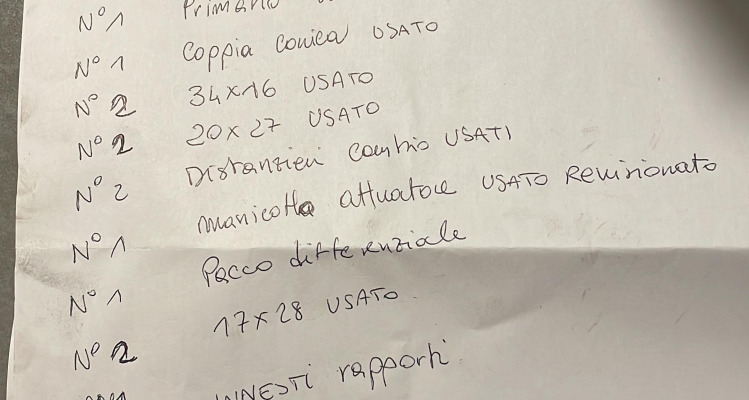 N° 1 Primario
N° 1 Coppia conica USATO
N° 2 34x16 USATO
N° 2 20x27 USATO
N° 2 Distanzieri cambio USATI
N° 1 manicotto attuatore USATO Revisionato
N° 1 Pacco differenziale
N° 2 17x28 USATO
INNESTI rapporti